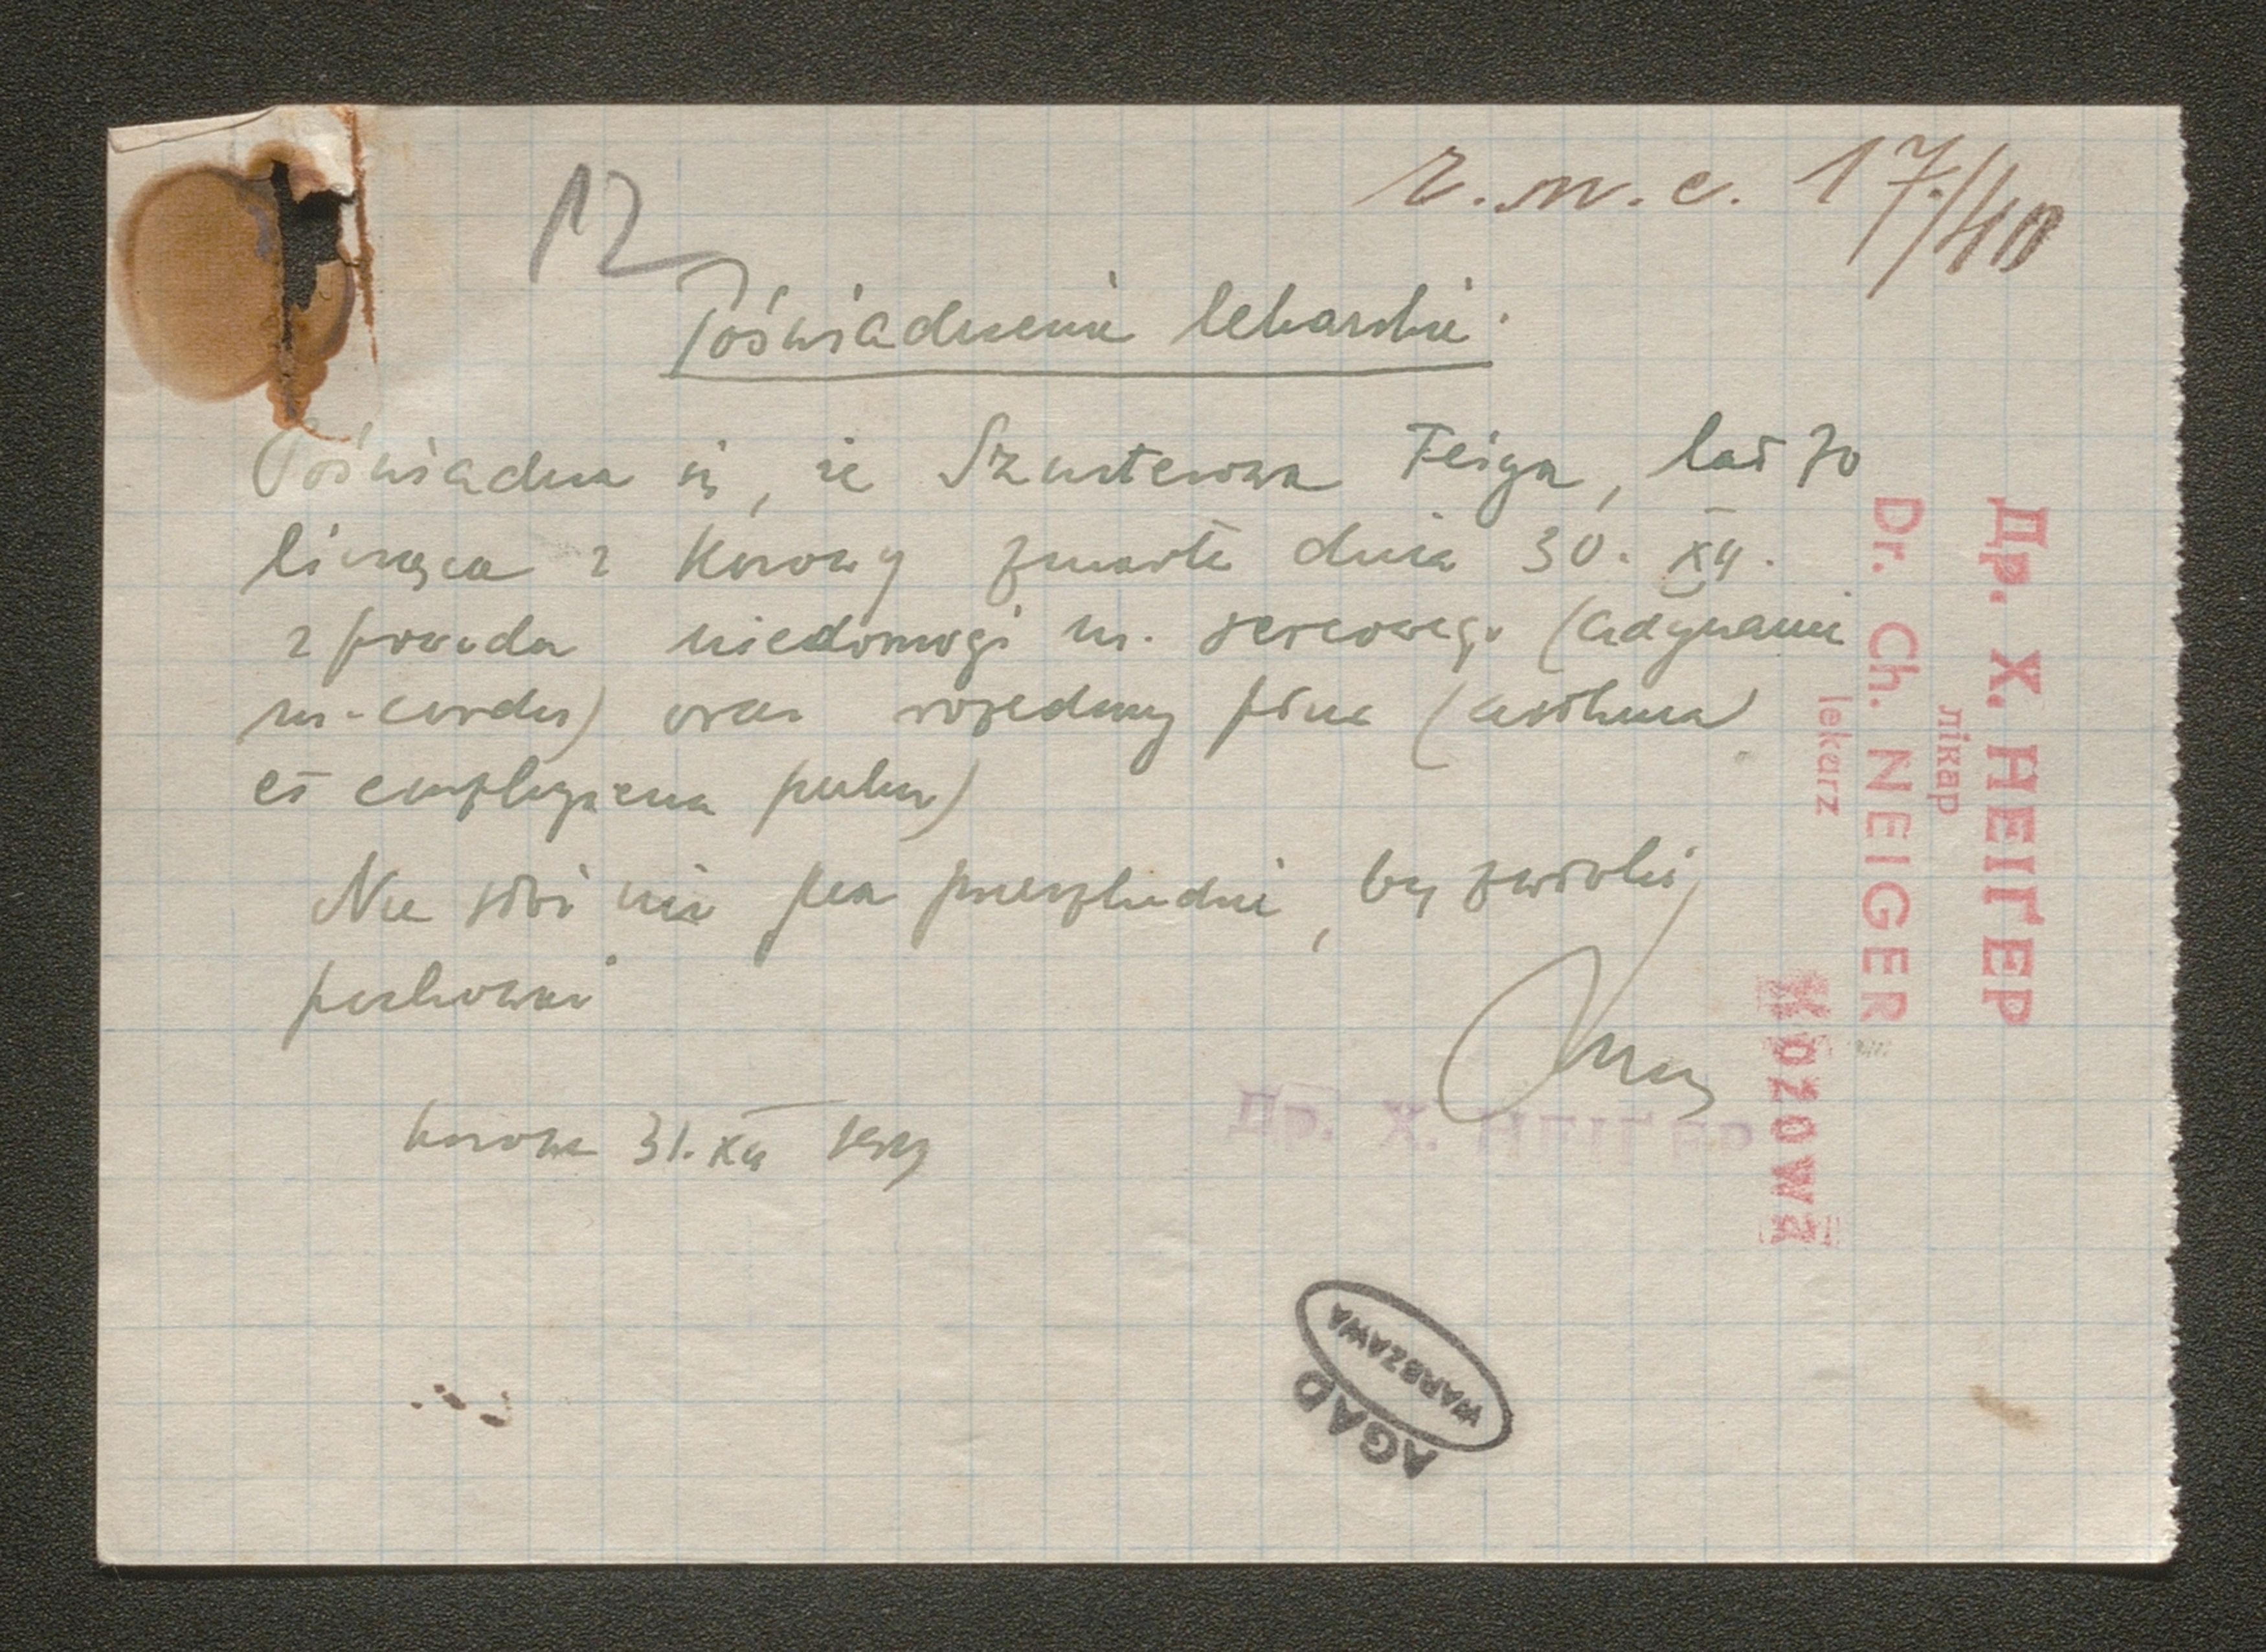 12
r. m. c. 17/40
Poświadczenie lekarskie
Poświadcza się, że Szusterowa Feiga, lat 70
licząca z Kozowy zmarła dnia 30. XII.
z powodu niedomogi m. sercowego (adynamia
m. cordis) oraz rozedmy płuc (asthma
et emphysema pulm)
Nie stoi nic na przeszkodzie, by zwłoki
pochować
Kozowa 31. XII 1939
Др. Х. НЕІҐЕР
лікар
Dr. Ch. NEIGER
lekarz
Kozowa
Др. Х. НЕІҐЕР
AGAD
WARSZAWA